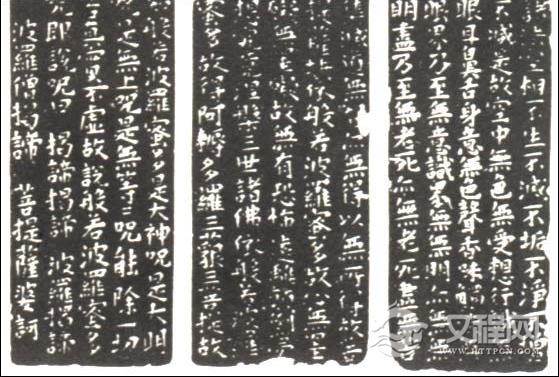 空相不生不滅不垢不淨不增
不減是故空中無色無受想行識
眼耳鼻舌身意無色聲香味觸
眼界乃至無意識界無無明亦無無
明盡乃至無老死亦無老死盡無苦
集滅道無智亦無得以無所得故菩
提薩埵依般若波羅蜜多故心無罣
礙無罣礙故無有恐怖遠離顛倒夢
想究竟涅槃三世諸佛依般若波羅
蜜多故得阿耨多羅三藐三菩提故
知般若波羅蜜多是大神呪是大明
呪是無上呪是無等等呪能除一切
苦真實不虛故說般若波羅蜜多
呪即說呪曰 揭諦揭諦 波羅揭諦
波羅僧揭諦 菩提薩婆訶
汉程网
WWW.HTTPCN.COM